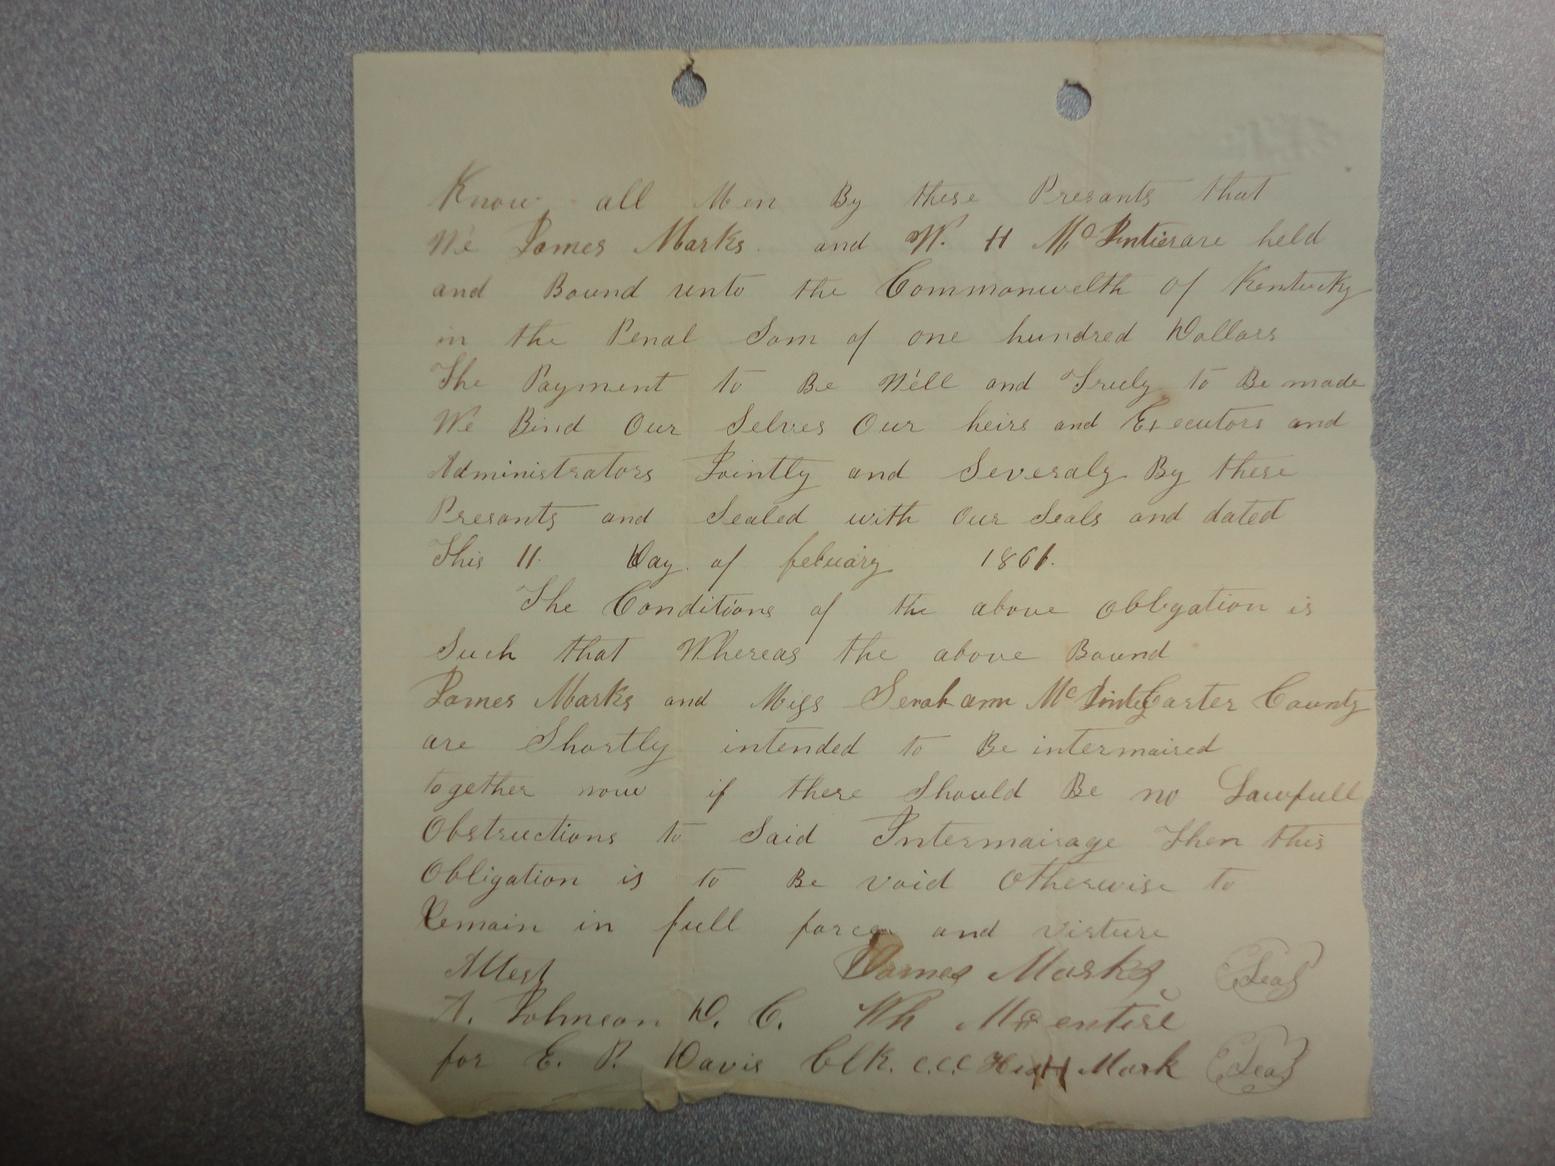 Know all Men By these Presants that
We James Marks and W. H McIntier are held
and Bound unto the Commonwelth of Kentucky
in the Penal Som of one hundred Dollars
The Payment to Be Well and Truly to Be made
We Bind Our Selves Our heirs and Executors and
Administrators Jointly and Severaly By these
Presants and Sealed with Our Seals and dated
This 11 Day of febuary 1861.
The Conditions of the above obligation is
Such that Whereas the above Bound
James Marks and Miss Serah ann Carter County
are Shortly intended to Be intermaired
together now if there Should Be no Lawfull
Obstructions to Said Intermairage Then this
Obligation is to Be void Otherwise to
Remain in full force and virture
Attest James Marks (Seal)
A. Johnson D. C. Wh
for E. P. Davis Clk. C.C.C His H Mark (Seal)